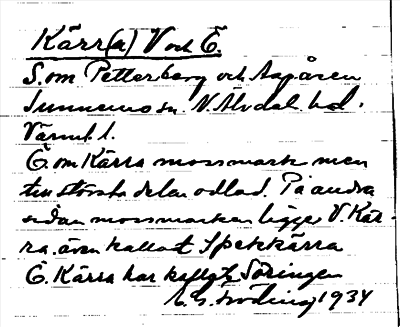 Kärr(a) V och Ö.
S. om Petterberg och Aspåsen
Sunnemo sn. N. Älvdals hd.
Värml. l.
Ö. om Kärra mossmark men
till största delen odlad. På andra
sidan mossmarken ligger V. Kär-
ra. även kallat Spekkärra
Ö. Kärra har kallats Söringen
1934